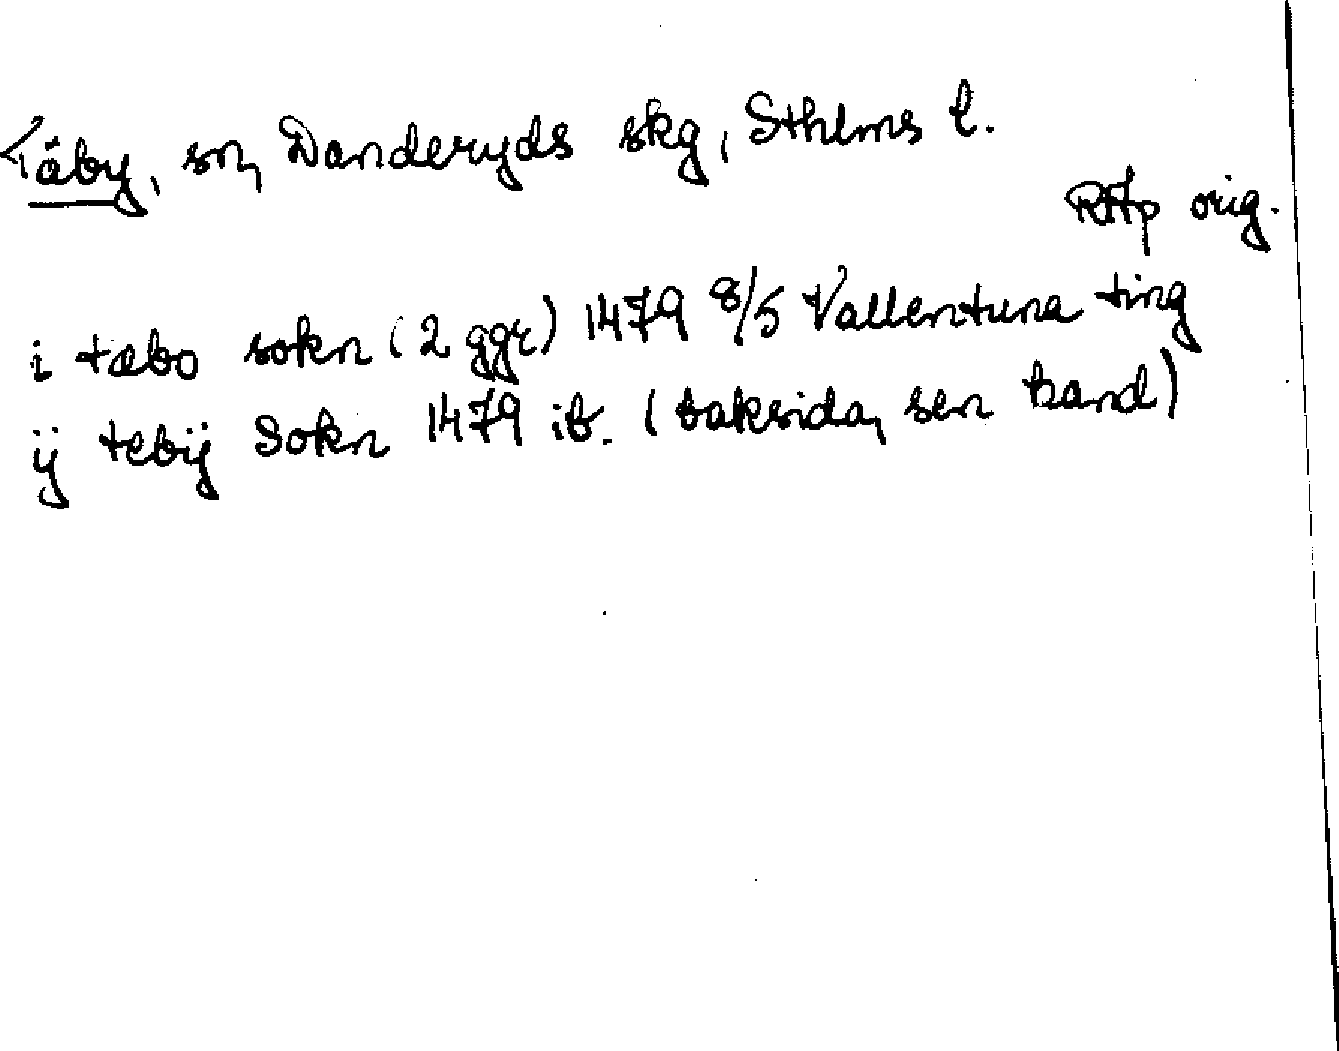 Täby, sn, Danderyds skg, Sthlms l.
RAp orig.
i tæbo sokn (2 ggr) 1479 8/5 Vallentuna ting
ÿ tebÿ Sokn 1479 ib. (baksida, sen hand)